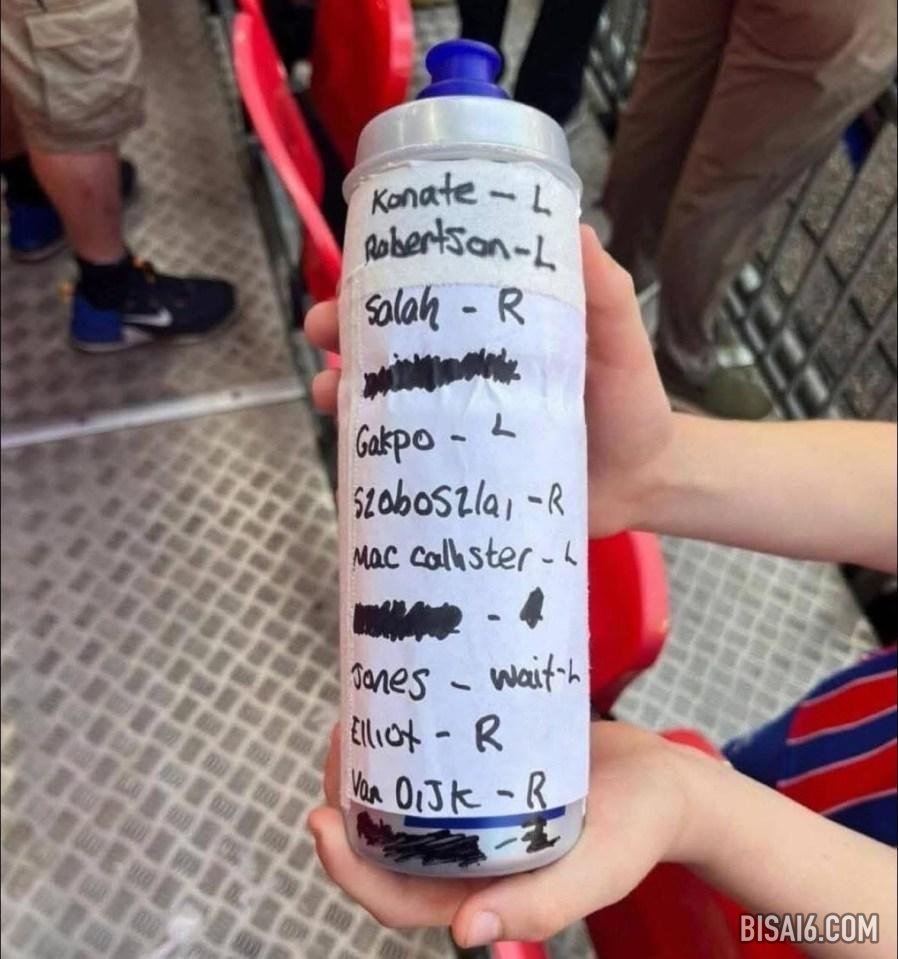 Konate - L
Robertson - L
Salah - R
Gakpo - L
Szoboszlai - R
Mac callister - L
Jones - wait - L
Elliot - R
Van Dijk - R
BISAI6.COM